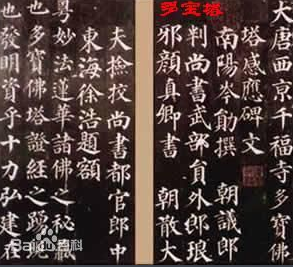 多宝塔
大唐西京千福寺多寶佛
塔感應碑文
南陽岑勛撰 朝議郎
判尚書武部員外郎琅
邪顏真卿書 朝散大
夫撿校尚書都官郎中
東海徐浩題額
粵妙法蓮華諸佛之秘藏
也多寶佛塔證經之踴現
也發明資乎十力弘建在
Bai百科